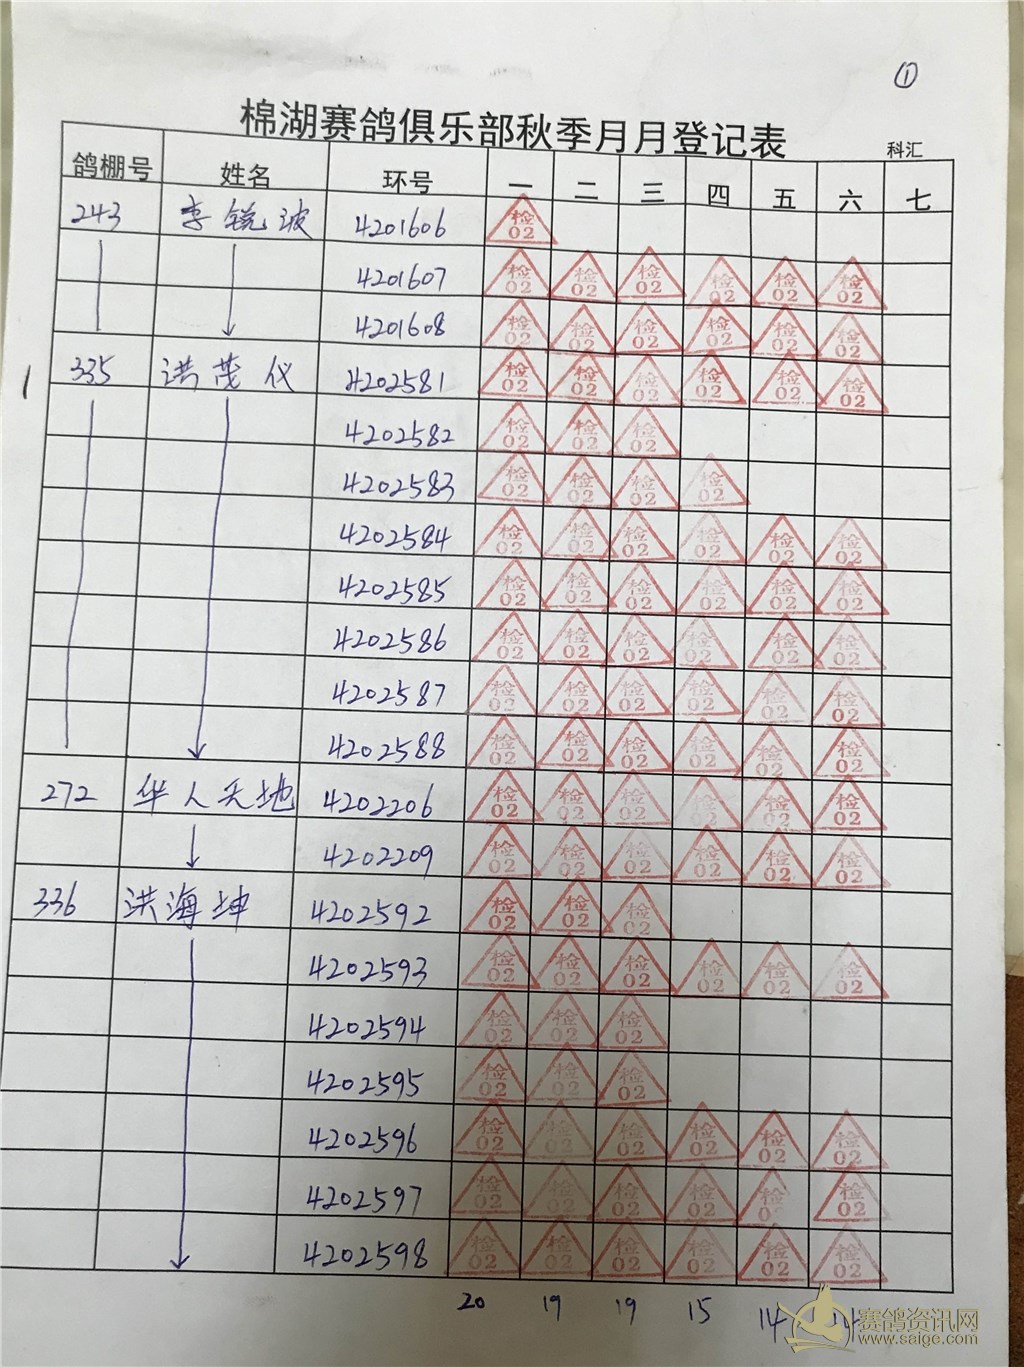 ①
棉湖赛鸽俱乐部秋季月月登记表
科汇
鸽棚号 姓名 环号 一 二 三 四 五 六 七
243 李锐波 4201606 检02
4201607 检02 检02 检02 检02 检02 检02
4201608 检02 检02 检02 检02 检02 检02
335 洪茂仪 4202581 检02 检02 检02 检02 检02 检02
4202582 检02 检02 检02
4202583 检02 检02 检02 检02
4202584 检02 检02 检02 检02 检02 检02
4202585 检02 检02 检02 检02 检02 检02
4202586 检02 检02 检02 检02 检02 检02
4202587 检02 检02 检02 检02 检02 检02
4202588 检02 检02 检02 检02 检02 检02
272 华人天地 4202206 检02 检02 检02 检02 检02 检02
4202209 检02 检02 检02 检02 检02 检02
336 洪海坤 4202592 检02 检02 检02
4202593 检02 检02 检02 检02 检02 检02
4202594 检02 检02 检02
4202595 检02 检02 检02
4202596 检02 检02 检02 检02 检02 检02
4202597 检02 检02 检02 检02 检02 检02
4202598 检02 检02 检02 检02 检02 检02
20 19 19 15 14 14
赛鸽资讯网
www.saige.com